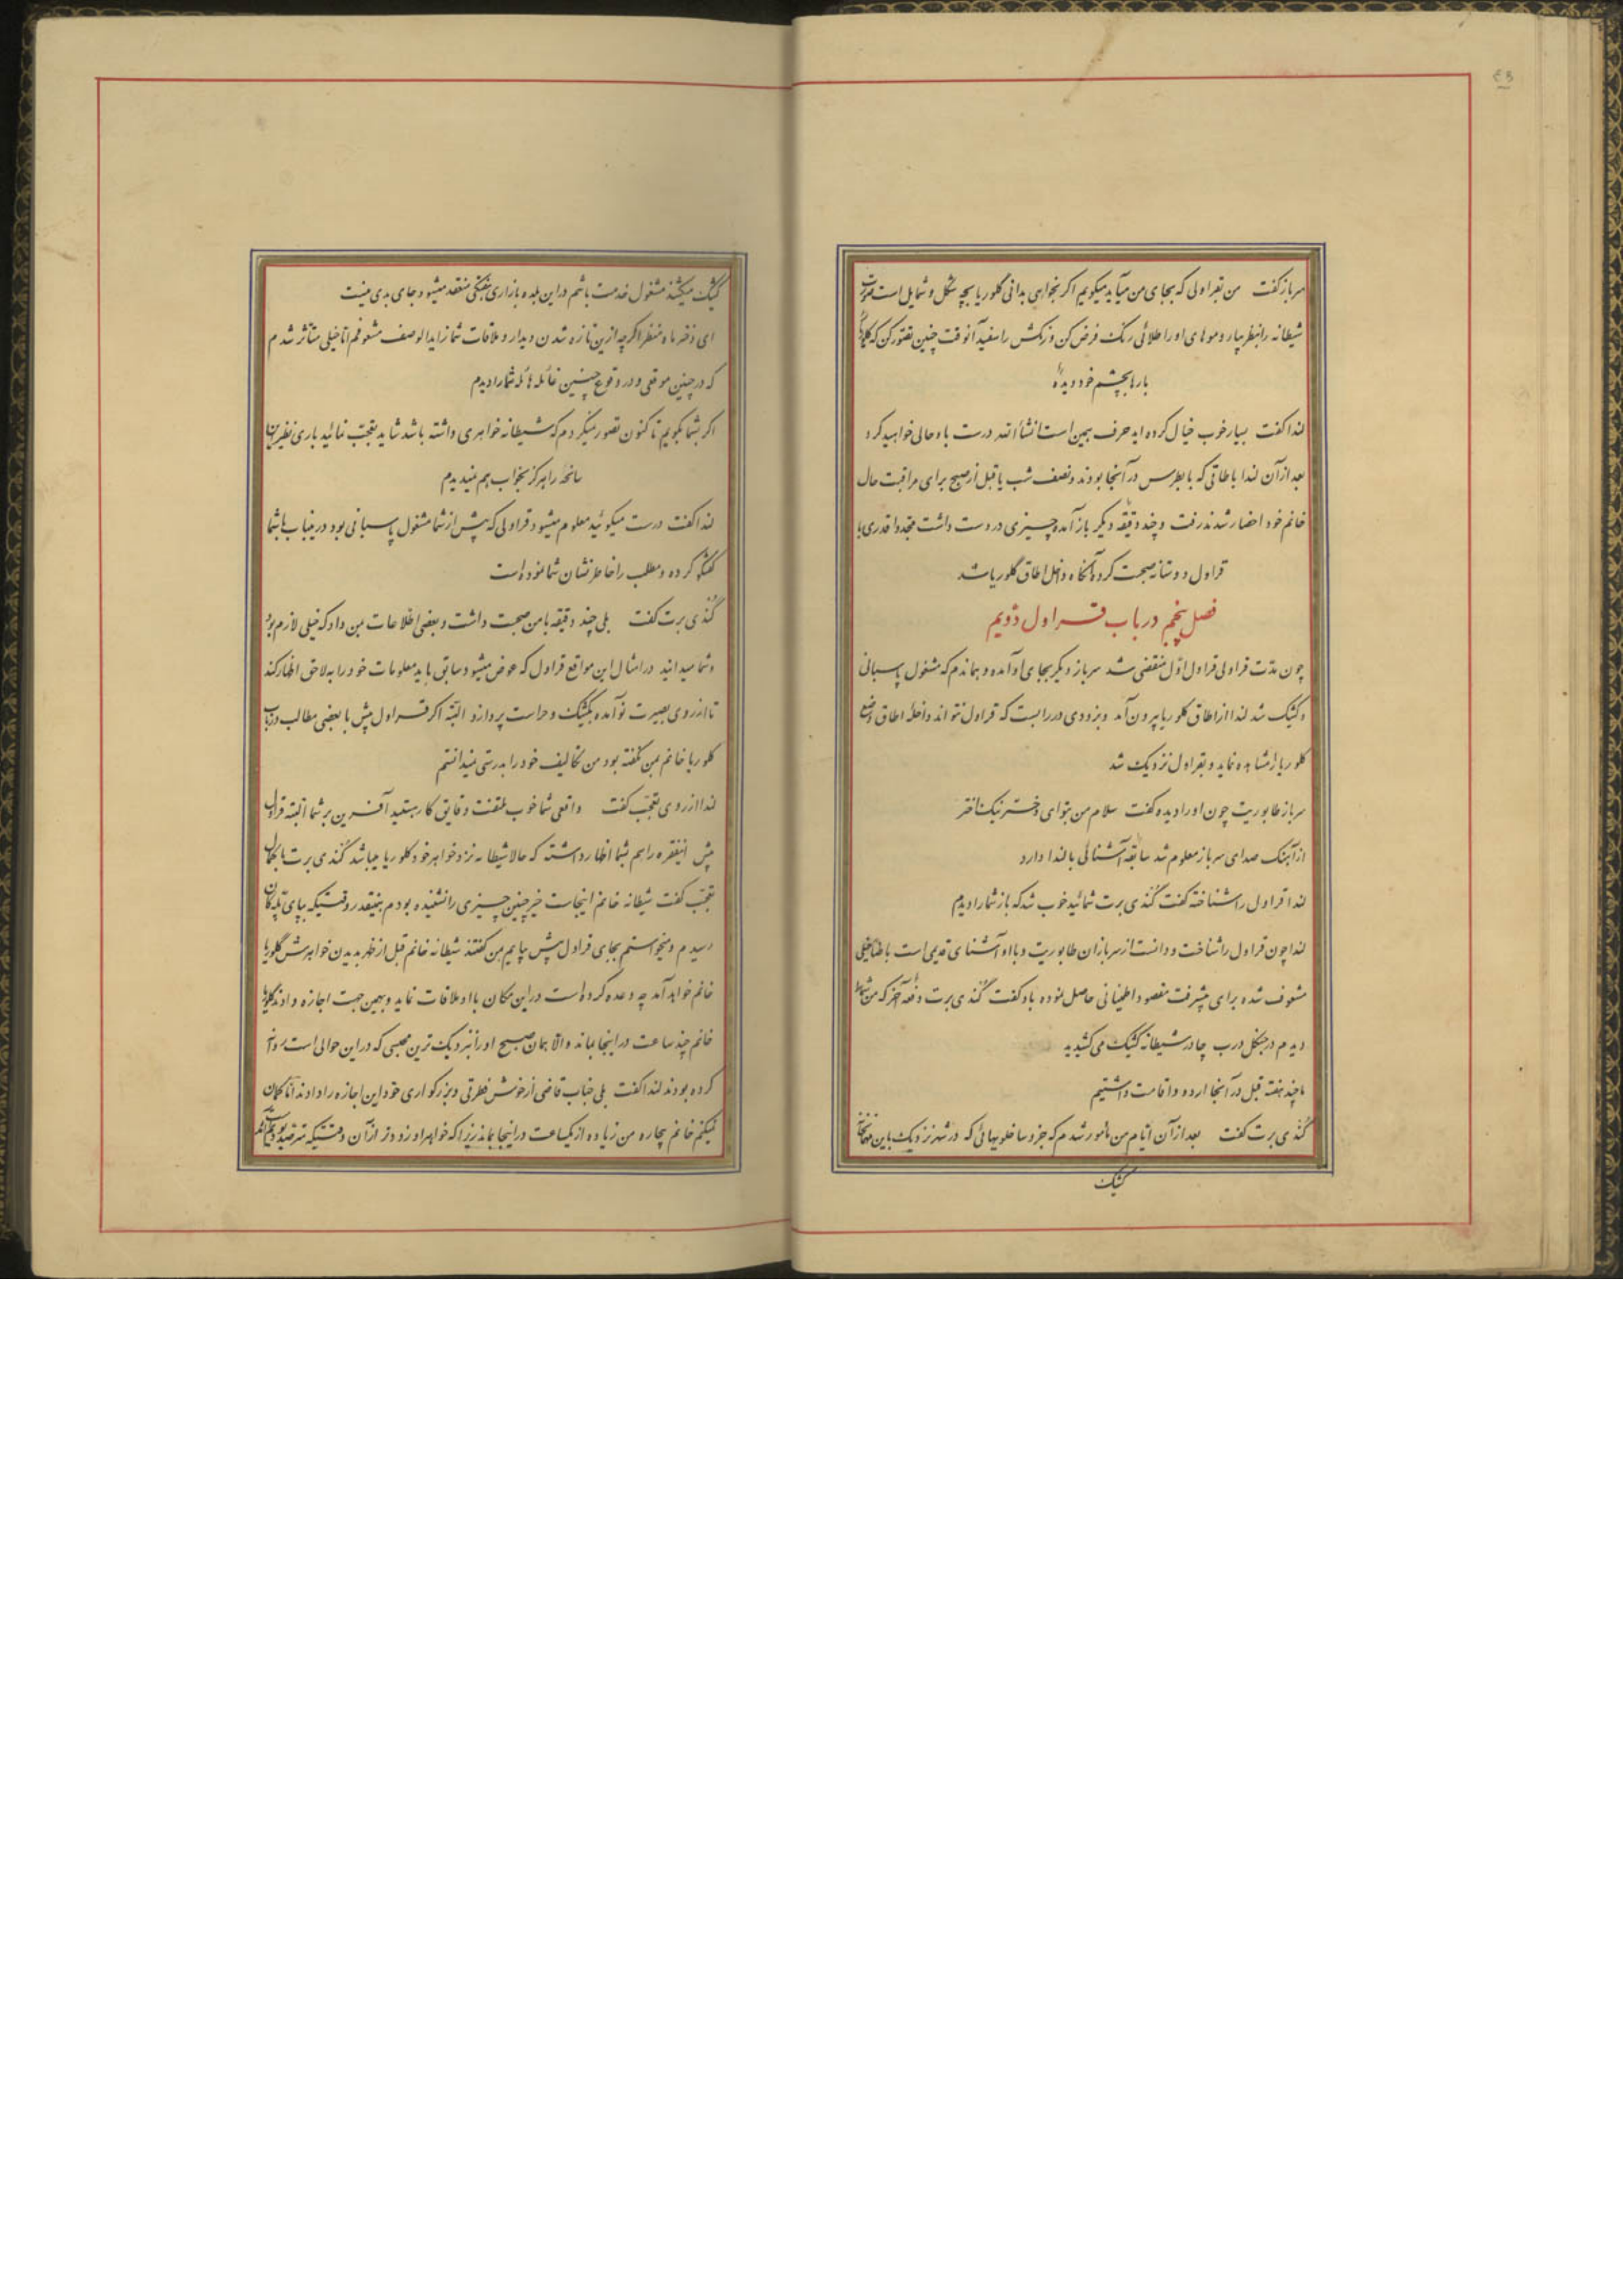 سرباز گفت من بقراولی که بجای من میآید میگویم اگر بخواهی بدانی گلوریا بچه شکل و شمایل است صورت
شیطانه را بنظر بیار و موهای او را طلائی رنگ فرض کن و رنگش را سفید آنوقت چنین تصور کن که گلوریا را
بارها بچشم خود دیدهٔ
لندا گفت بسیار خوب خیال کرده اید حرف همین است انشاءالله درست باو حالی خواهید کرد
بعد از آن لندا باطاقی که با بطرس در آنجا بودند و نصف شب یا قبل از صبح برای مراقبت حال
خانم خود احضار شدند رفت و چند دقیقه دیگر باز آمده چیزی در دست داشت مجددا قدری با
قراول دوستانه صحبت کرده آنگاه داخل اطاق گلوریا شد
فصل پنجم در باب قراول دویم
چون مدت قراولی قراول اول منقضی شد سرباز دیگر بجای او آمده و بهماندم که مشغول پاسبانی
و کشیک شد لندا از اطاق گلوریا بیرون آمد و بزودی در را بست که قراول نتواند داخلهٔ اطاق و وضع
گلوریا را مشاهده نماید و بقراول نزدیک شد
سرباز طابوریت چون او را دیده گفت سلام من بتو ای دختر نیک اختر
از آهنگ صدای سرباز معلوم شد سابقهٔ آشنائی با لندا دارد
لندا قراول را شناخته گفت گندی برت شمائید خوب شد که باز شما را دیدم
لندا چون قراول را شناخت و دانست از سربازان طابوریت و با او آشنای قدیمی است باطناً خیلی
مشعوف شده برای پیشرفت مقصود اطمینانی حاصل نموده باو گفت گندی برت دفعهٔ آخر که من شما را
دیدم در جنگل درب چادر شیطانه کشیک می کشیدید
ما چند هفته قبل در آنجا اردو و اقامت داشتیم
گندی برت گفت بعد از آن ایام من مأمور شدم که جزو ساخلویهائی که در شهر نزدیک باین
کشیک
کشیک میکشند مشغول خدمت باشم در این بلده بازاری هفتگی منعقد میشود جای بدی نیست
ای دختر ماه منظر اگرچه ازین تازه شدن دیدار و ملاقات شما زایدالوصف مشعوفم اما خیلی متأثر شدم
که در چنین موقعی و در وقوع چنین غائلهٔ هائله شما را دیدم
اگر بشما بگویم تا کنون تصور نمیکردم که شیطانه خواهری داشته باشد شاید تعجب نمائید باری نظیر این
سانحه را هرگز بخواب هم نمیدیدم
لندا گفت درست میگوئید معلوم میشود قراولی که پیش از شما مشغول پاسبانی بود در غیاب با شما
گفتگو کرده و مطلب را خاطرنشان شما نموده است
گندی برت گفت بلی چند دقیقه با من صحبت داشت و بعضی اطلاعات بمن داد که خیلی لازم بود
و شما میدانید در امثال این مواقع قراول که عوض میشود سابق باید معلومات خود را به لاحق اظهار کند
تا از روی بصیرت نوآمده بکشیک و حراست پردازد البته اگر قراول پیش با بعضی مطالب در باب
گلوریا خانم بمن نگفته بود من تکالیف خود را بدرستی نمیدانستم
لندا از روی تعجب گفت واقعی شما خوب ملتفت دقایق کار هستید آفرین بر شما البته قراول
پیش اینفقره را هم بشما اظهار داشته که حالا شیطانه نزد خواهر خود گلوریا میباشد گندی برت با کمال
تعجب گفت شیطانه خانم اینجاست خیر چنین چیزی را نشنیده بودم همینقدر وقتیکه بپای پله کان
رسیدم و میخواستم بجای قراول پیش بیایم بمن گفتند شیطانه خانم قبل از ظهر بدیدن خواهرش گلوریا
خانم خواهد آمد چه وعده کرده است در این مکان با او ملاقات نماید و بهمین جهت اجازه دادند گلوریا
خانم چند ساعت در اینجا بماند والا همان صبح او را نزدیک ترین محبسی که در این حوالی است روانه
کرده بودند لندا گفت بلی جناب قاضی از خوش فطرتی و بزرگواری خود این اجازه را دادند اما گمان
نمیکنم خانم بیچاره من زیاده از یکساعت در اینجا بماند زیرا که خواهر او زودتر از آن وقتیکه مترصد بودیم